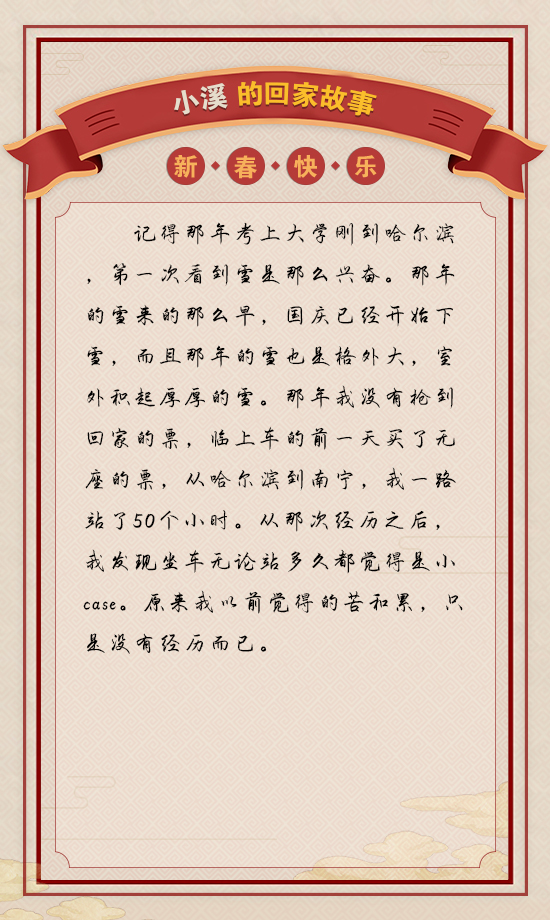 小溪 的回家故事
新春快乐
记得那年考上大学刚到哈尔滨
，第一次看到雪是那么兴奋。那年
的雪来的那么早，国庆已经开始下
雪，而且那年的雪也是格外大，室
外积起厚厚的雪。那年我没有抢到
回家的票，临上车的前一天买了无
座的票，从哈尔滨到南宁，我一路
站了50个小时。从那次经历之后，
我发现坐车无论站多久都觉得是小
case。原来我以前觉得的苦和累，只
是没有经历而已。